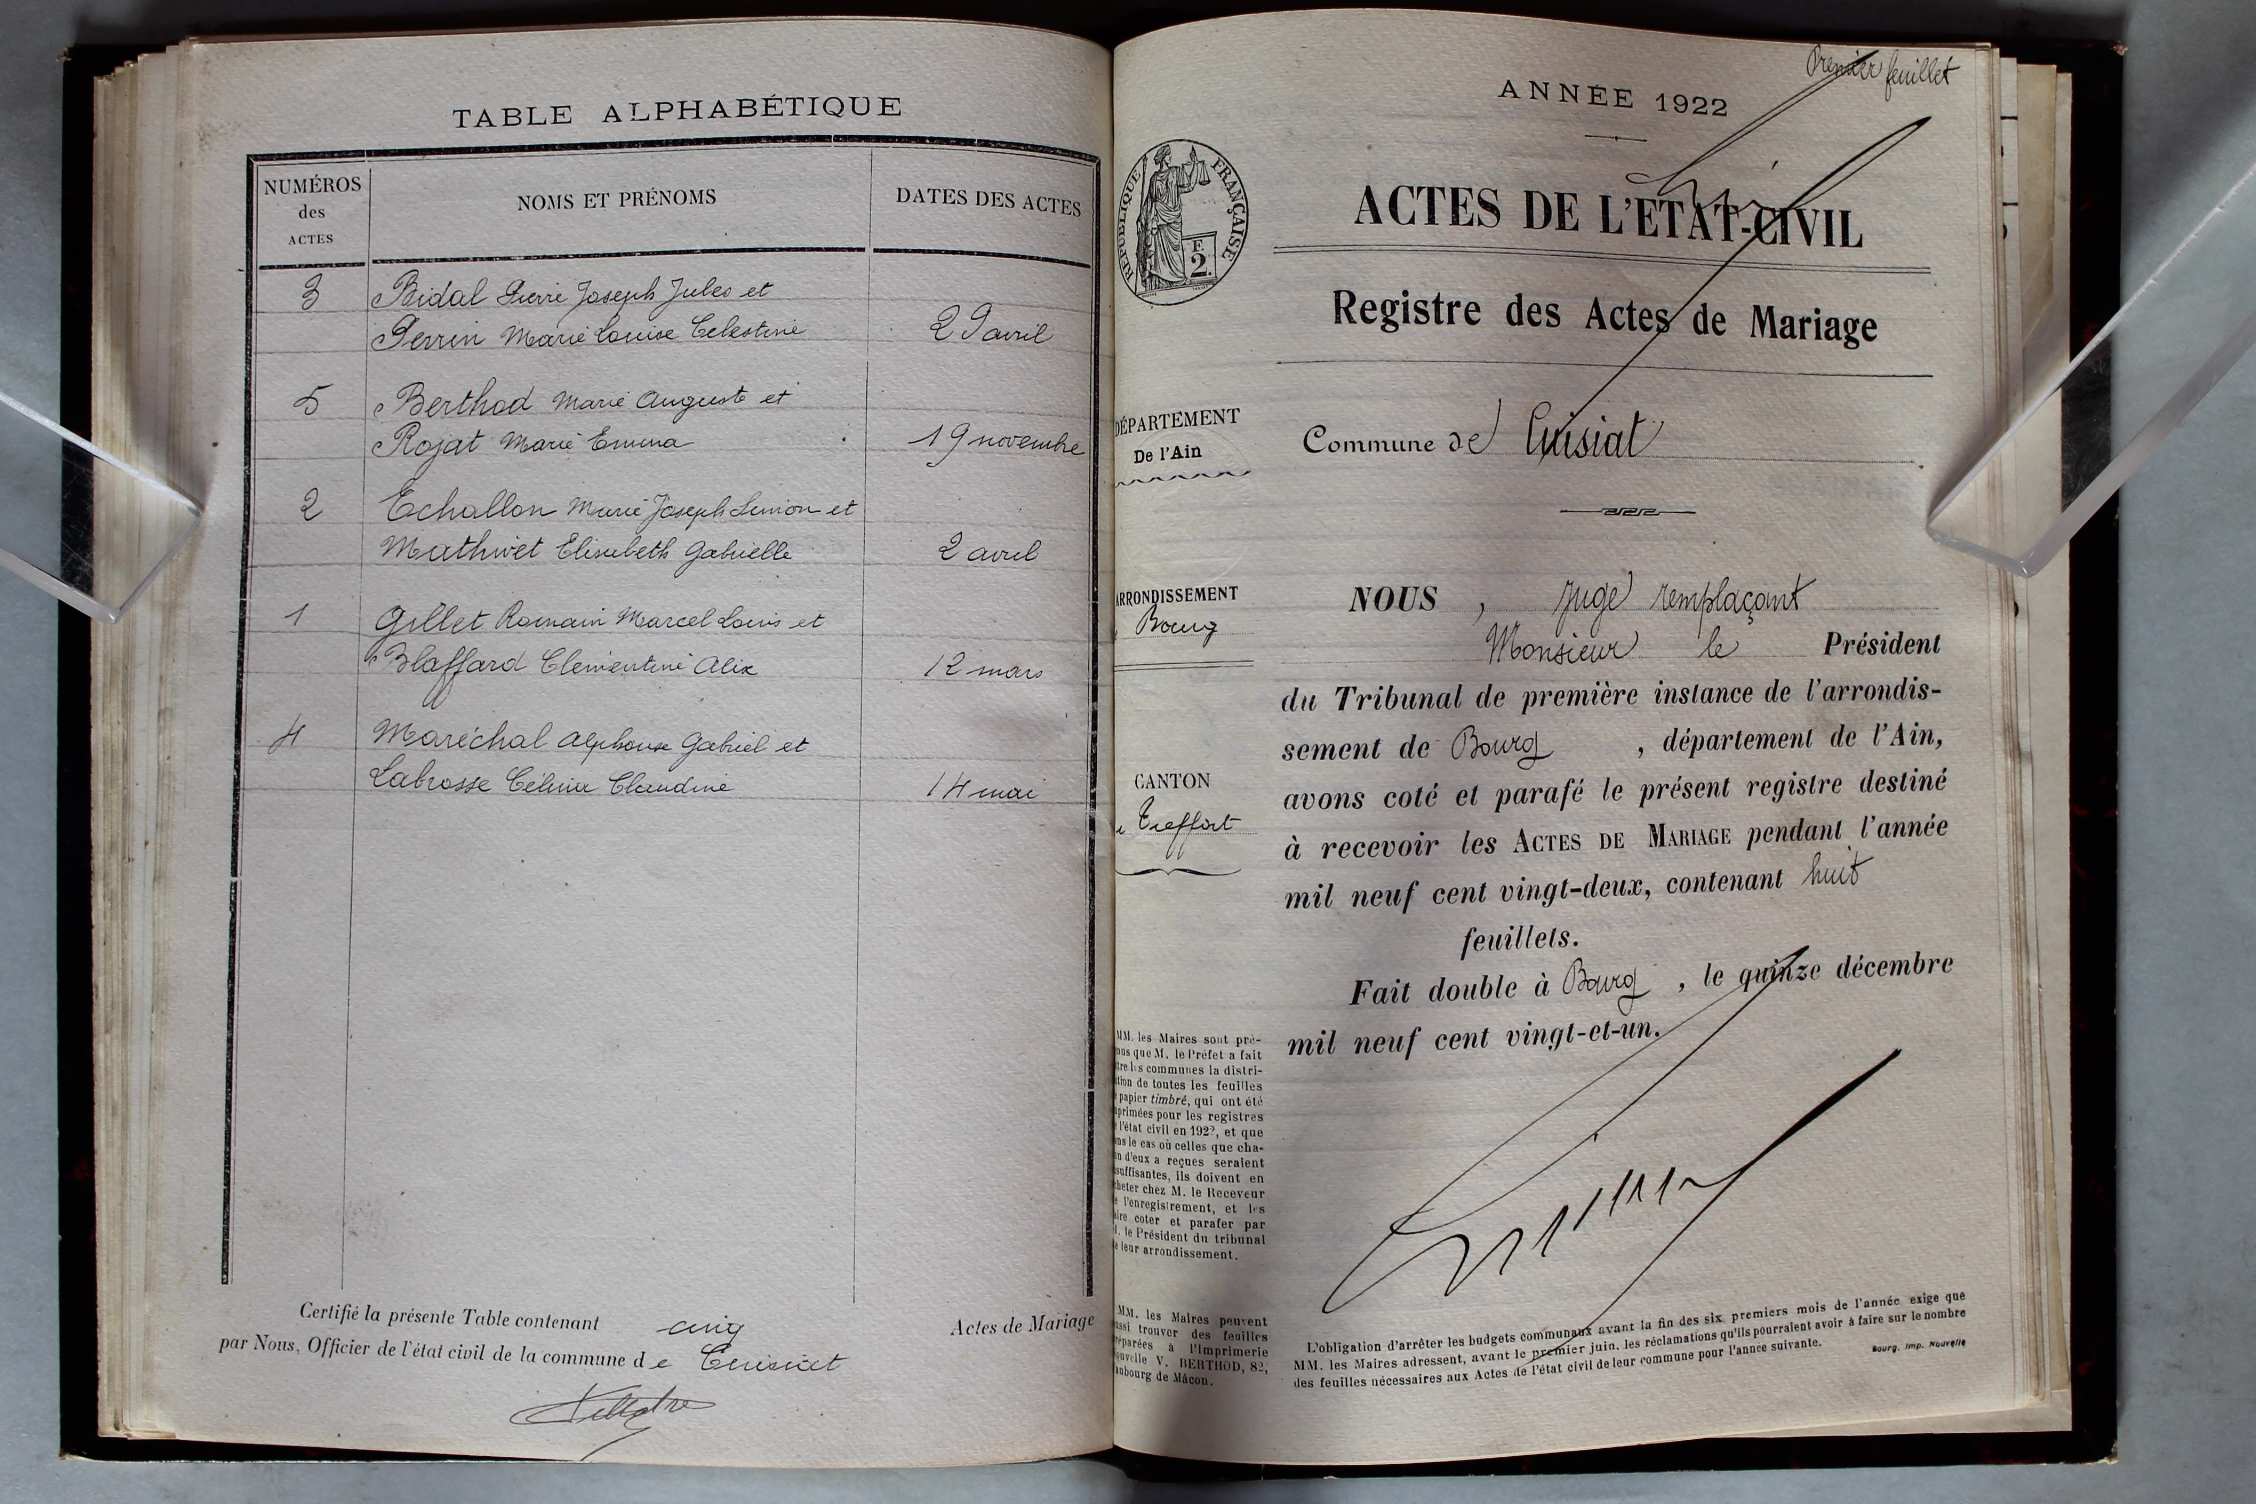 TABLE ALPHABÉTIQUE
NUMÉROS
des
ACTES
NOMS ET PRÉNOMS
DATES DES ACTES
3 Bidal Pierre Joseph Jules et
Perrin Marie Louise Celestine 29 avril
5 Berthod Marie Auguste et
Rojat Marie Emma 19 novembre
2 Echallon Marie Joseph Simon et
Mathivet Elisabeth Gabrielle 2 avril
1 Gillet Romain Marcel Louis et
Blaffard Clementine Alix 12 mars
4 Maréchal Alphonse Gabriel et
Labrosse Célina Claudine 14 mai
Certifié la présente Table contenant cinq Actes de Mariage
par Nous, Officier de l'état civil de la commune de Cuisiat
Premier feuillet
ANNÉE 1922
RÉPUBLIQUE FRANÇAISE
F.
2
ACTES DE L'ETAT-CIVIL
Registre des Actes de Mariage
DÉPARTEMENT
De l'Ain
Commune de Cuisiat
ARRONDISSEMENT
Bourg
CANTON
Treffort
NOUS, juge remplaçant
Monsieur le Président
du Tribunal de première instance de l'arrondis-
sement de Bourg, département de l'Ain,
avons coté et parafé le présent registre destiné
à recevoir les ACTES DE MARIAGE pendant l'année
mil neuf cent vingt-deux, contenant huit
feuillets.
Fait double à Bourg, le quinze décembre
mil neuf cent vingt-et-un.
MM. les Maires sont pré-
que M. le Préfet a fait
les communes la distri-
de toutes les feuilles
papier timbré, qui ont été
pour les registres
l'état civil en 1922, et que
le cas où celles que cha-
d'eux a reçues seraient
ils doivent en
chez M. le Receveur
l'enregistrement, et les
coter et parafer par
le Président du tribunal
leur arrondissement.
MM. les Maires peuvent
trouver des feuilles
à l'Imprimerie
V. BERTHOD, 82,
de Mâcon.
L'obligation d'arrêter les budgets communaux avant la fin des six premiers mois de l'année exige que
MM. les Maires adressent, avant le premier juin, les réclamations qu'ils pourraient avoir à faire sur le nombre
des feuilles nécessaires aux Actes de l'état civil de leur commune pour l'année suivante.
Bourg. Imp. Nouvelle